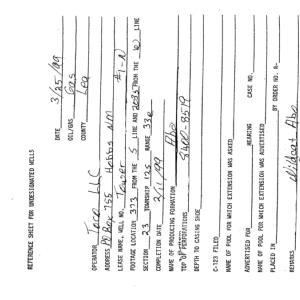 REFERENCE SHEET FOR UNDESIGNATED WELLS
DATE 3/25/99
OIL/GAS Gas
COUNTY Lea
OPERATOR LLC
ADDRESS PO Box 755 Hobbs NM
LEASE NAME, WELL NO. #1-N
FOOTAGE LOCATION 373 FROM THE S LINE AND FROM THE W LINE
SECTION 23 TOWNSHIP 12S RANGE 33e
COMPLETION DATE 2/11/99
NAME OF PRODUCING FORMATION Abo
TOP OF PERFORATIONS 8400-8519
DEPTH TO CASING SHOE
C-123 FILED
NAME OF POOL FOR WHICH EXTENSION WAS ASKED
ADVERTISED FOR HEARING CASE NO.
NAME OF POOL FOR WHICH EXTENSION WAS ADVERTISED
PLACED IN BY ORDER NO. R-
REMARKS Wildcat Abo